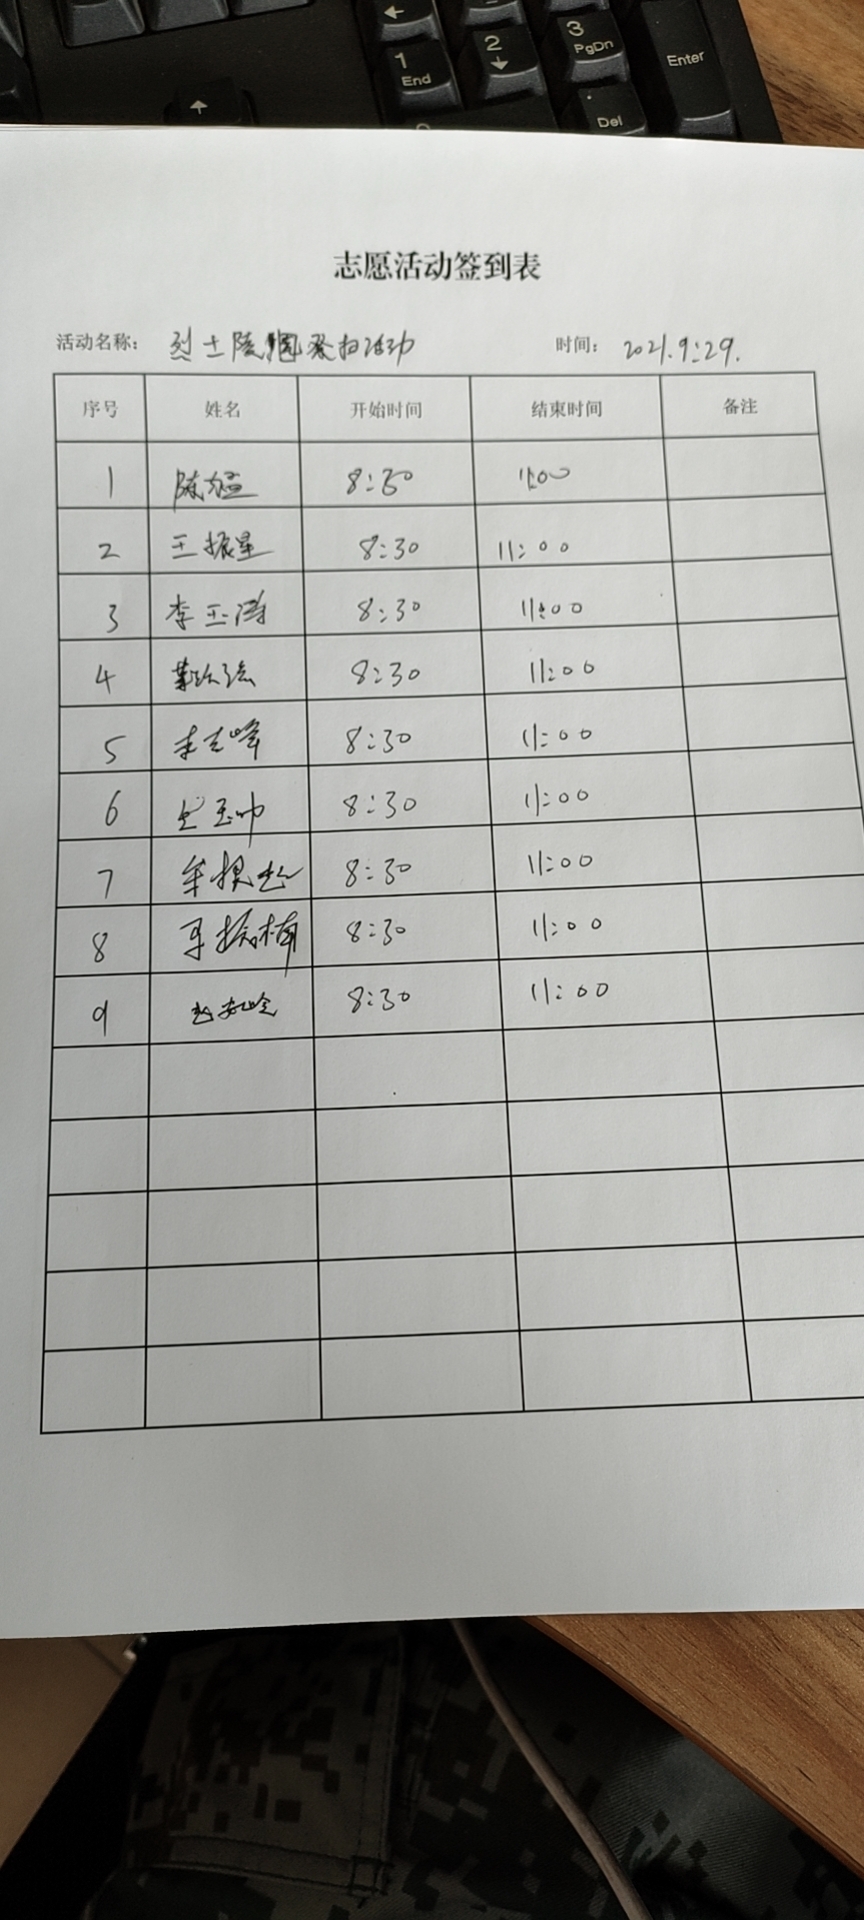 ←
1 2 3
End ↓ PgDn Enter
↑
Del
志愿活动签到表
活动名称： 烈士陵园祭扫活动 时间： 2021.9.29.
序号 姓名 开始时间 结束时间 备注
1 8:30 11:00
2 王振星 8:30 11:00
3 李玉涛 8:30 11:00
4 8:30 11:00
5 李志峰 8:30 11:00
6 8:30 11:00
7 8:30 11:00
8 8:30 11:00
9 8:30 11:00